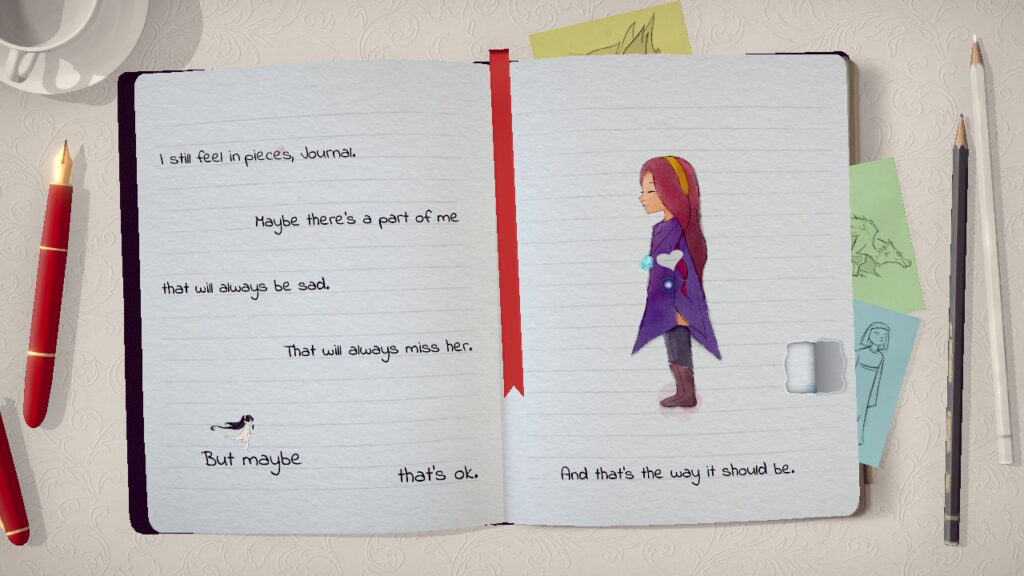 I still feel in pieces, Journal.
Maybe there's a part of me
that will always be sad.
That will always miss her.
But maybe
that's ok.
And that's the way it should be.